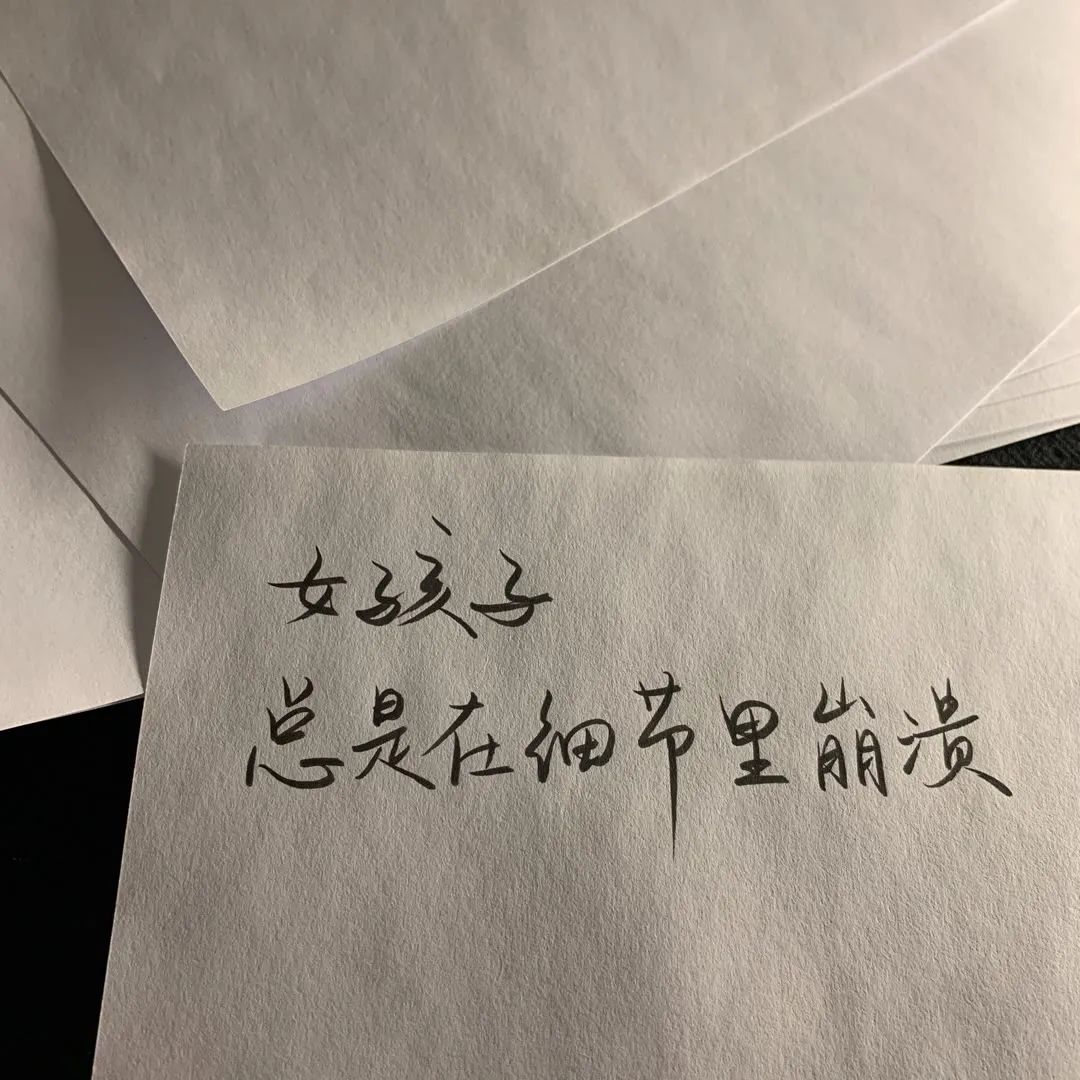 女孩子
总是在细节里崩溃